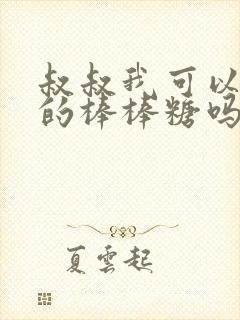 叔叔我可以
的棒棒糖吗
夏云起